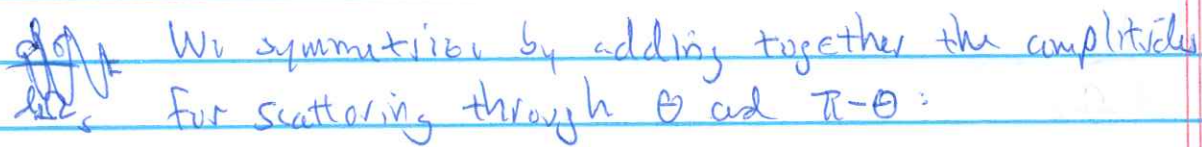 We symmetrize by adding together the amplitudes
for scattering through θ and π-θ: